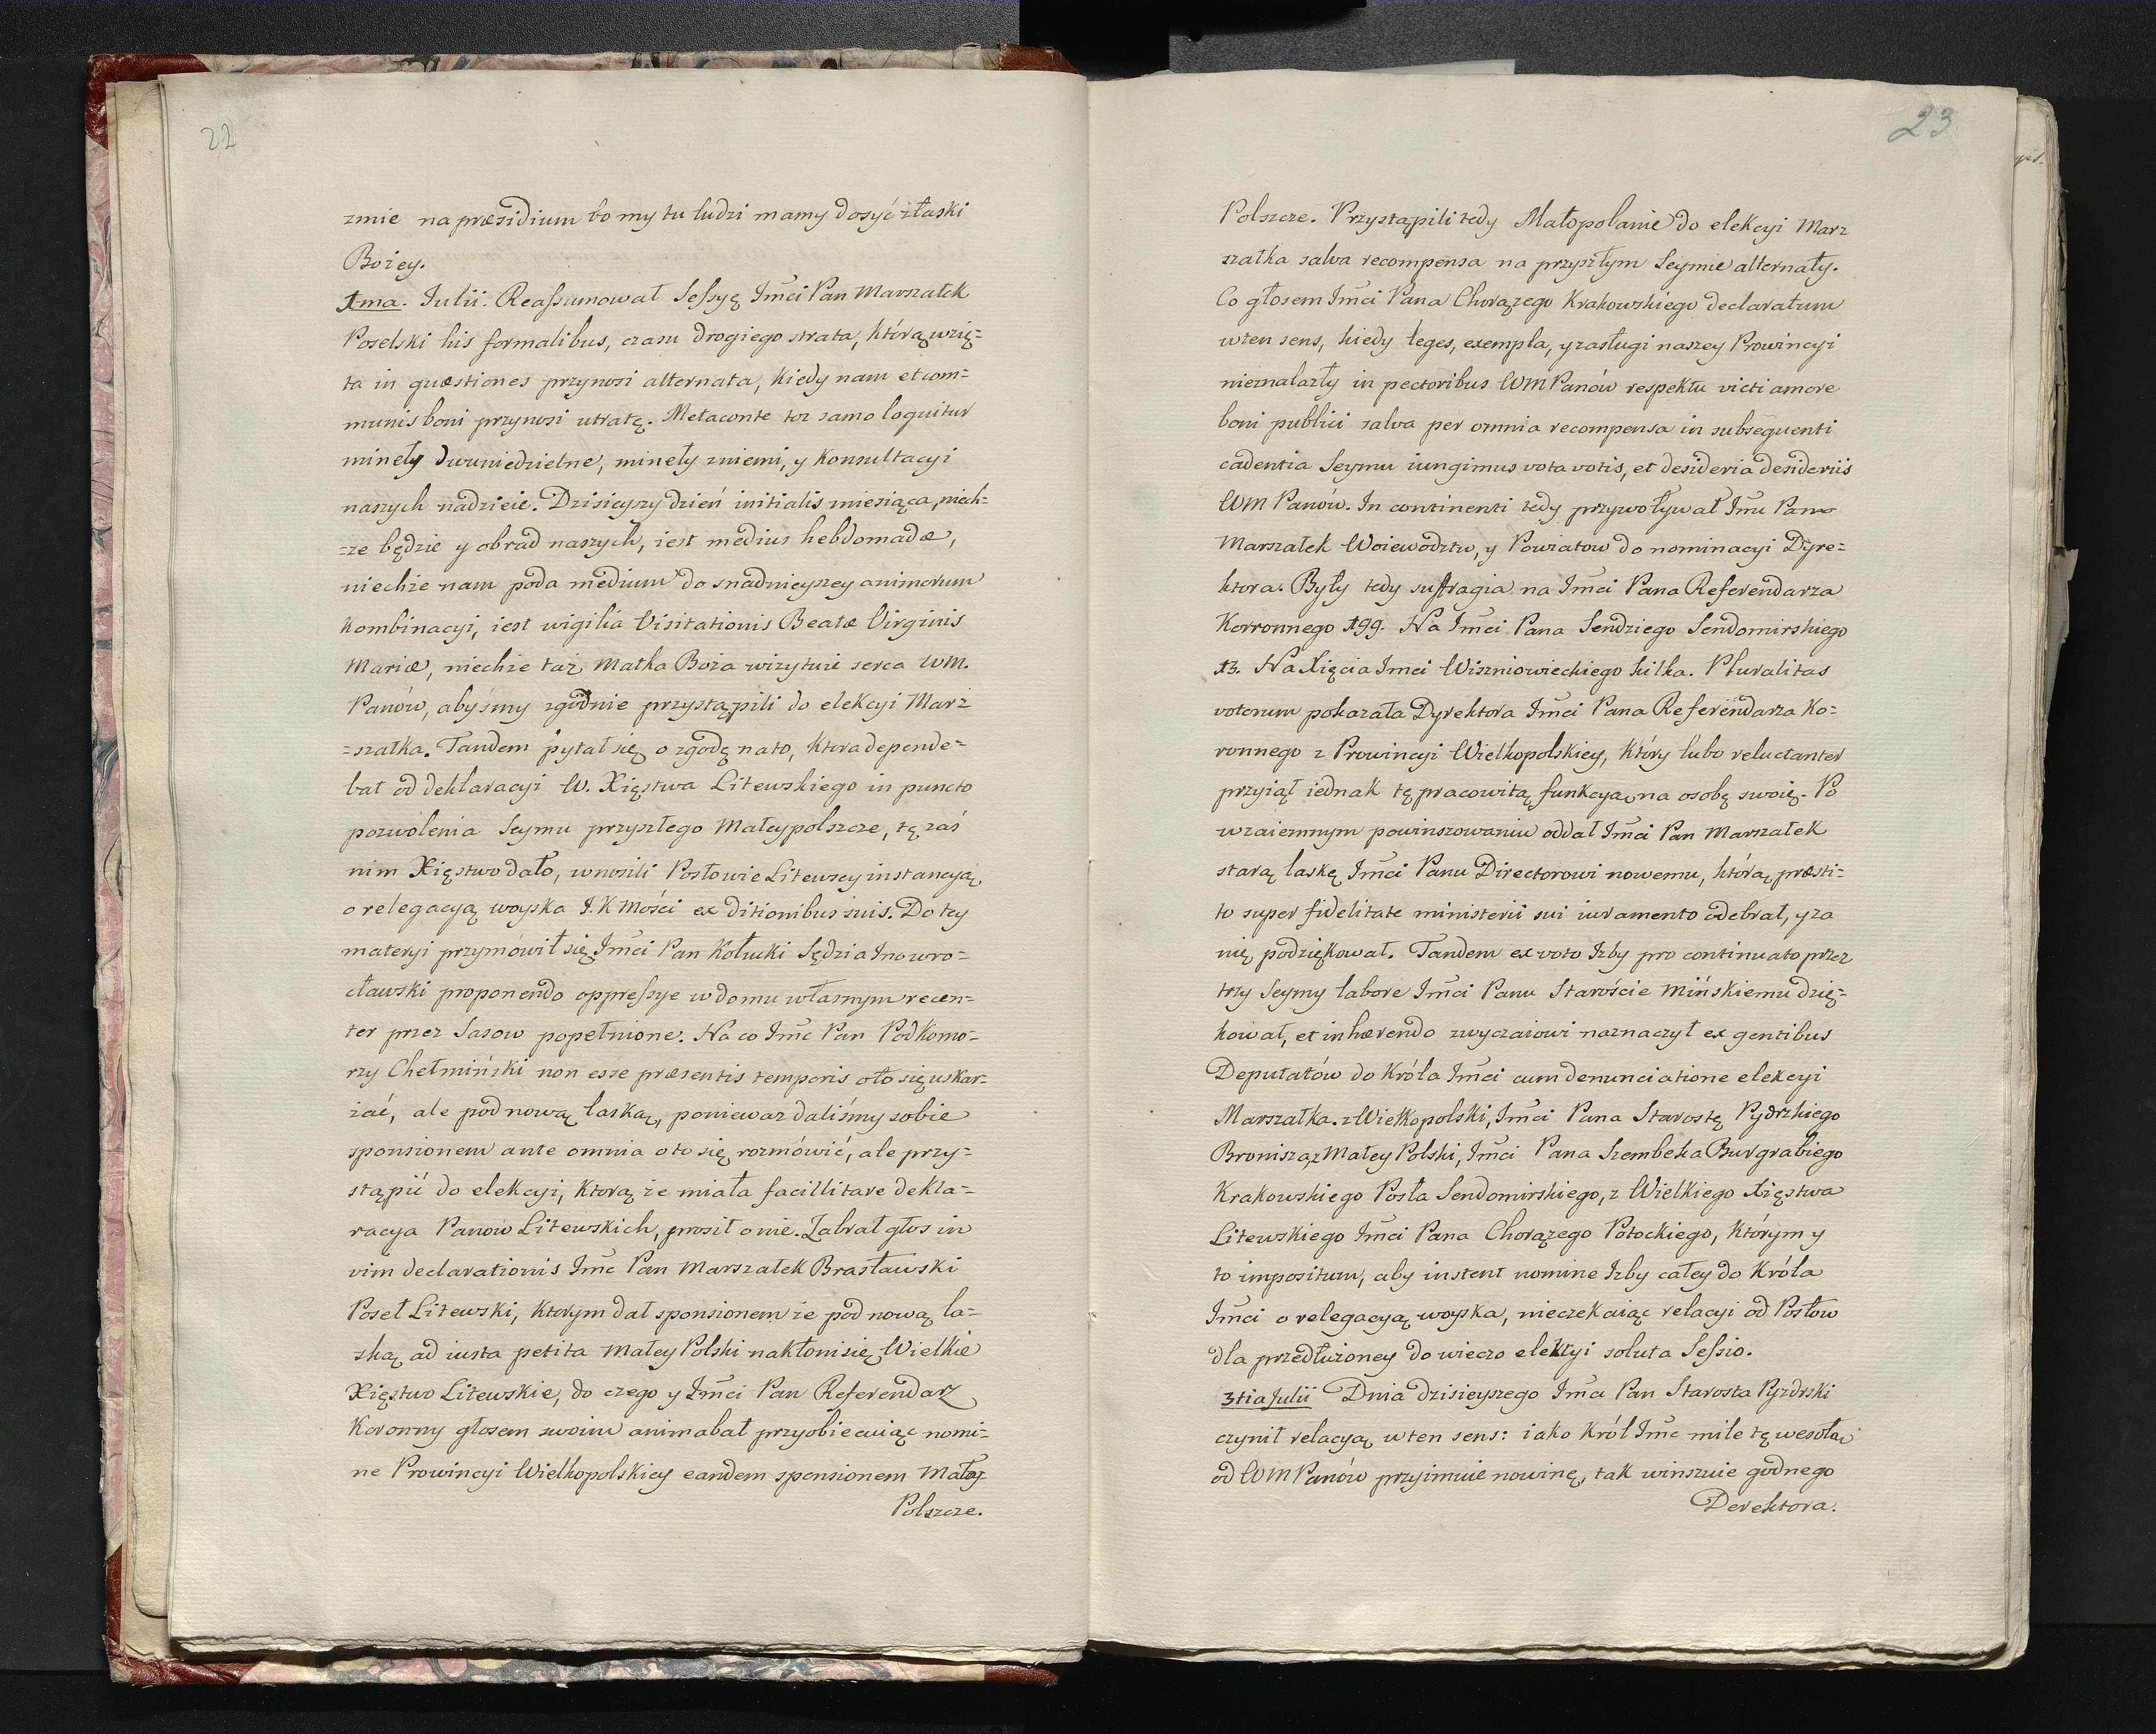 22
zmie na præsidium bo my tu ludzi mamy dosyć z łaski
Bożey.
1ma. Iulii. Reassumował Sessyę Jmci Pan Marszałek
Poselski his formalibus, czasu drogiego strata, którą wzię-
ta in quæstiones przynosi alternata, kiedy nam et com-
munis boni przynosi utratę. Me taconte toz samo loquitur
mineły dwuniedzielne, mineły zniemi, y Konsultacyi
naszych nadzieie. Dzisieyszy dzień initialis miesiąca, niech-
-ze będzie y obrad naszych, iest medius hebdomadæ,
niechże nam poda medium do snadnieyszey animorum
kombinacyi, iest wigilia Visitationis Beatæ Virginis
Mariæ, niechże taż Matka Boża wizytuie serca WM.
Panów, abyśmy zgodnie przystąpili do elekcyi Mar-
-szałka. Tandem pytał się o zgodę na to, ktora depende-
bat od deklaracyi W. Xięstwa Litewskiego in puncto
pozwolenia Seymu przyszłego Małeypolszcze, tę zaś
nim Xięstwo dało, wnosili Posłowie Litewscy instancyą
o relegacyą woyska J. K Mości ex ditionibus suis. Do tey
materyi przymówił się Jmci Pan Kołucki Sędzia Inowro-
cławski proponendo oppressye w domu własnym recen-
ter przez Sasow popełnione. Na co Jmc Pan Podkomo-
rzy Chełmiński non esse præsentis temporis oto się uskar-
żać, ale pod nową laską, poniewaz daliśmy sobie
sponsionem ante omnia oto się rozmówić, ale przy-
stąpić do elekcyi, ktorą że miała facillitare dekla-
racya Panow Litewskich, prosił o nie. Zabrał głos in
vim declarationis Jmc Pan Marszałek Brasławski
Poseł Litewski, ktorym dał sponsionem że pod nową la-
ską ad iusta petita Małey Polski nakłoni się Wielkie
Xięstwo Litewskie, do czego y Jmci Pan Referendarz
Koronny głosem swoim animabat przyobiecuiąc nomi-
ne Prowincyi Wielkopolskiey eandem sponsionem Małey
Polszcze.
23
Polszcze. Przystąpili tedy Małopolanie do elekcyi Mar
szałka salva recompensa na przyszłym Seymie alternaty.
Co głosem Jmci Pana Chorązego Krakowskiego declaratum
w ten sens, kiedy leges, exempla, y zasługi naszey Prowincyi
nieznalazły in pectoribus WM Panów respektu victi amore
boni publici salva per omnia recompensa in subsequenti
cadentia Seymu iungimus vota votis, et desideria desideriis
WM Panów. In continenti tedy przywoływał Jmc Pan
Marszałek Woiewodztw, y Powiatow do nominacyi Dyre-
ktora. Były tedy suffragia na Jmci Pana Referendarza
Korronnego 199. Na Jmci Pana Sendziego Sendomirskiego
13. Na Xięcia Jmci Wiszniowieckiego kilka. Pluralitas
votorum pokazała Dyrektora Jmci Pana Referendarza Ko-
ronnego z Prowincyi Wielkopolskiey, który lubo reluctanter
przyiął iednak tę pracowitą funkcyą na osobę swoię. Po
wzaiemnym powinszowaniu oddał Jmci Pan Marszałek
starą laskę Jmci Panu Directorowi nowemu, którą præsti-
to super fidelitate ministerii sui iuramento odebrał, y za
nię podziękował. Tandem ex voto Izby pro continuato przez
trzy Seymy labore Jmci Panu Staroście Mińskiemu dzię-
kował, et inhærendo zwyczaiowi naznaczył ex gentibus
Deputatów do Króla Jmci cum denunciatione elekcyi
Marszałka. z Wielkopolski, Jmci Pana Starostę Pydrzkiego
Bronisza, z Małey Polski, Jmci Pana Szembeka Burgrabiego
Krakowskiego Posła Sendomirskiego, z Wielkiego Xięstwa
Litewskiego Jmci Pana Chorązego Potockiego, którym y
to impositum, aby instent nomine Izby całey do Króla
Jmci o relegacyą woyska, nieczekaiąc relacyi od Posłow
dla przedłużoney do wieczo elekcyi soluta Sessio.
3tia Julii Dnia dzisieyszego Jmci Pan Starosta Pyzdrski
czynił relacyą w ten sens: iako Król Jmc mile tę wesołą
od WM Panów przyimuie nowinę, tak winszuie godnego
Derektora.